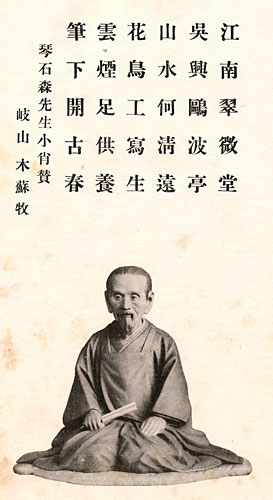 江南翠微堂
吳興鷗波亭
山水何清遠
花鳥工寫生
雲煙足供養
筆下開古春
琴石森先生小肖贊
岐山木蘇牧